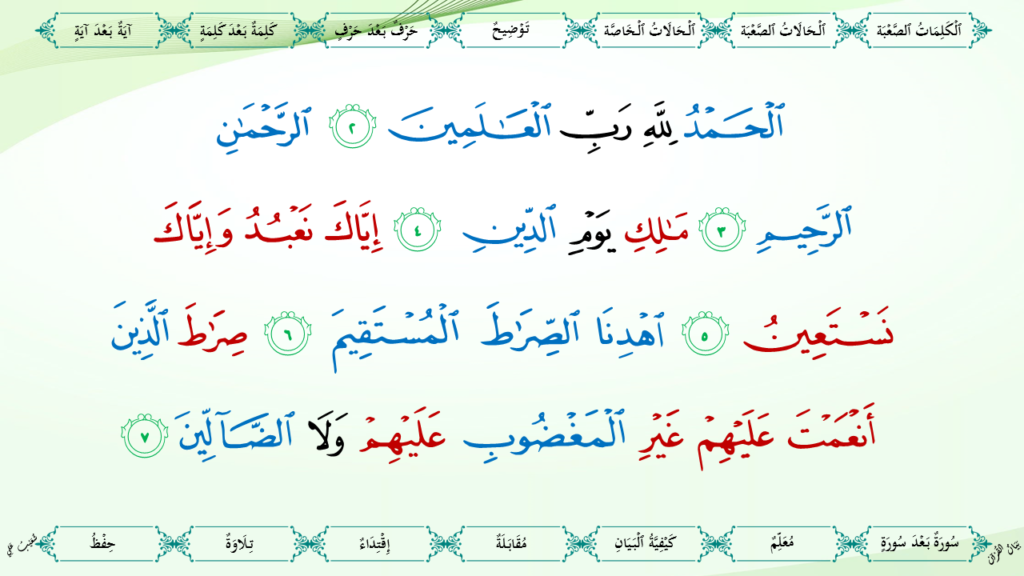 ٱلْكَلِمَاتُ ٱلصَّعْبَة ٱلْحَالَاتُ ٱلصَّعْبَة ٱلْحَالَاتُ ٱلْخَاصَّة تَوْضِيحٌ حَرْفٌ بَعْدَ حَرْفٍ كَلِمَةٌ بَعْدَ كَلِمَةٍ آيَةٌ بَعْدَ آيَةٍ
ٱلْحَمْدُ لِلَّهِ رَبِّ ٱلْعَـٰلَمِينَ ٢ ٱلرَّحْمَـٰنِ
ٱلرَّحِيمِ ٣ مَـٰلِكِ يَوْمِ ٱلدِّينِ ٤ إِيَّاكَ نَعْبُدُ وَإِيَّاكَ
نَسْتَعِينُ ٥ ٱهْدِنَا ٱلصِّرَٰطَ ٱلْمُسْتَقِيمَ ٦ صِرَٰطَ ٱلَّذِينَ
أَنْعَمْتَ عَلَيْهِمْ غَيْرِ ٱلْمَغْضُوبِ عَلَيْهِمْ وَلَا ٱلضَّآلِّينَ ٧
سُورَةٌ بَعْدَ سُورَةٍ مُعَلِّمٌ كَيْفِيَّةُ ٱلْبَيَانِ مُقَابَلَةٌ إِقْتِدَاءٌ تِلَاوَةٌ حِفْظُ
بَيَانُ القُرْآن